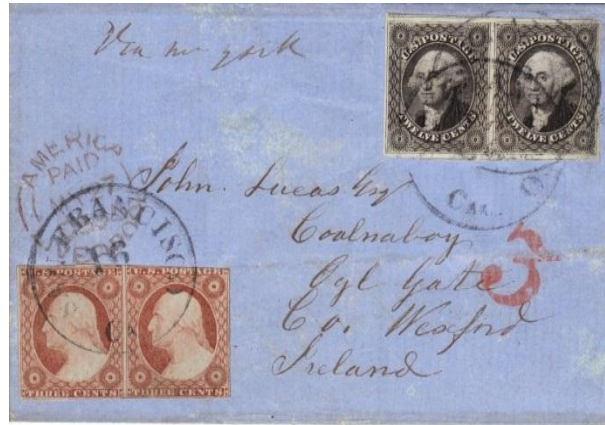 Via new york
U.S. POSTAGE
TWELVE CENTS
U.S. POSTAGE
TWELVE CENTS
AMERICA
PAID
FRANCISCO
CAL
CAL
John Lucas Esq
Coolnaboy
Oyl Gate
Co. Wexford
Ireland
3
U.S. POSTAGE
THREE CENTS
U.S. POSTAGE
THREE CENTS